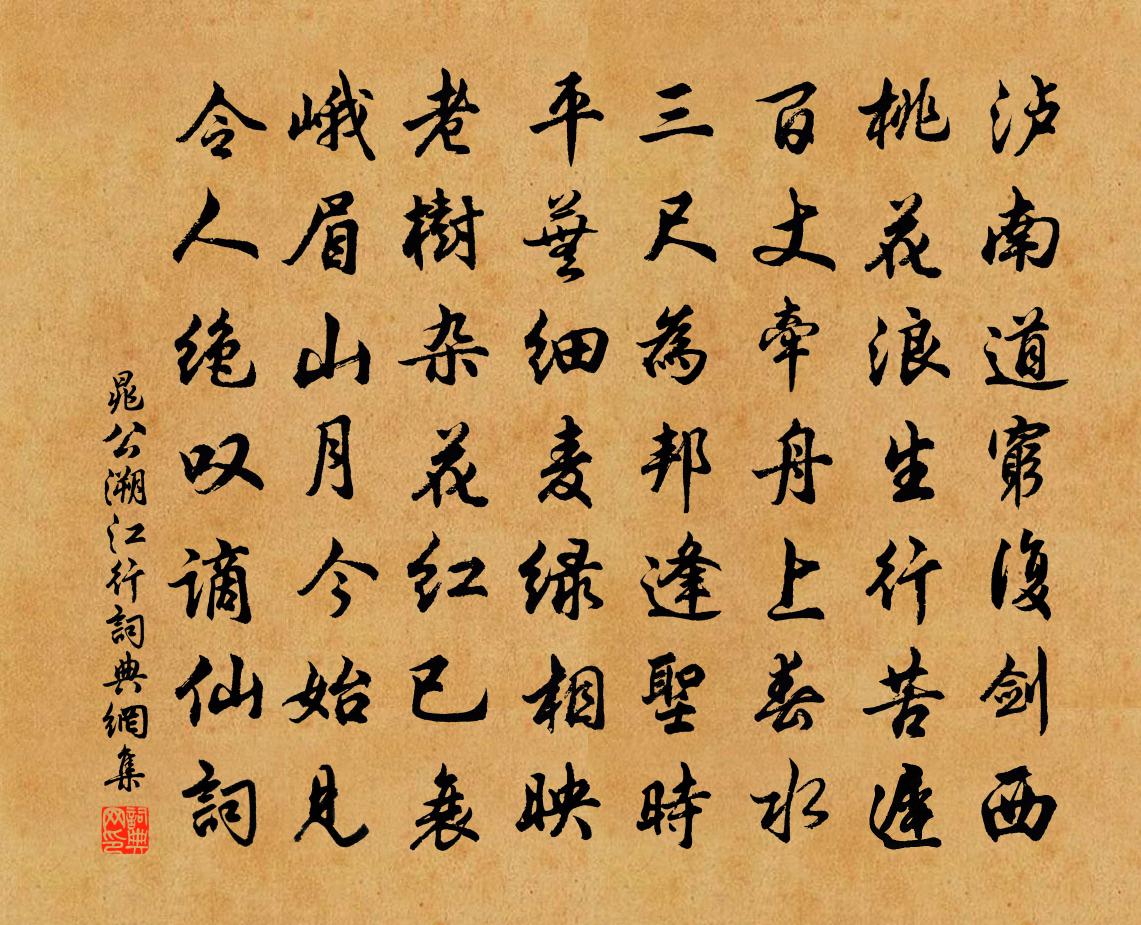 泸南道窮復剑西
桃花浪生行苦遲
百丈牽舟上春水
三尺為邦逢聖時
平蕪细麦绿相映
老樹杂花红已衰
峨眉山月今始見
令人绝叹谪仙詞
晁公溯江行詞典網集
詞典网印